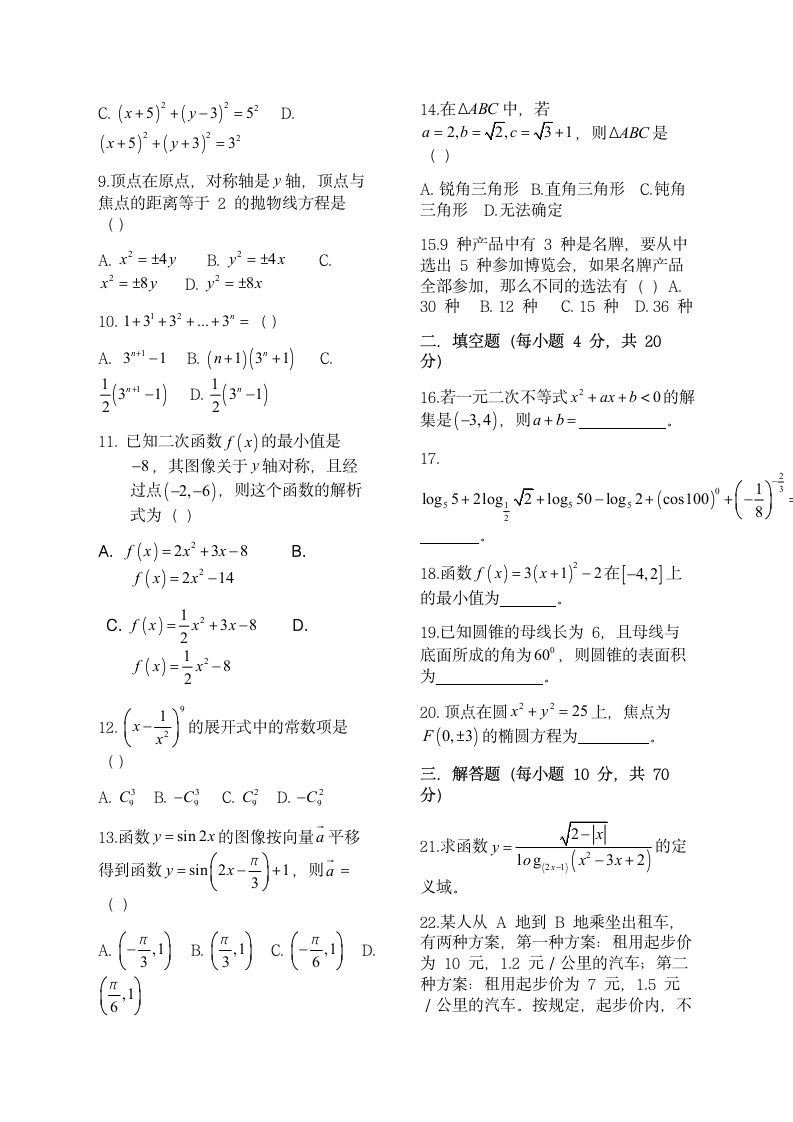 C. (x+5)²+(y−3)²=5² D.
(x+5)²+(y+3)²=3²
9.顶点在原点，对称轴是 y 轴，顶点与
焦点的距离等于 2 的抛物线方程是
（ ）
A. x²=±4y B. y²=±4x C.
x²=±8y D. y²=±8x
10. 1+3¹+3²+...+3ⁿ=（ ）
A. 3ⁿ⁺¹−1 B. (n+1)(3ⁿ+1) C.
1/2(3ⁿ⁺¹−1) D. 1/2(3ⁿ−1)
11. 已知二次函数 f(x) 的最小值是
−8，其图像关于 y 轴对称，且经
过点(−2,−6)，则这个函数的解析
式为（ ）
A. f(x)=2x²+3x−8 B.
f(x)=2x²−14
C. f(x)=1/2x²+3x−8 D.
f(x)=1/2x²−8
12. (x−1/x²)⁹ 的展开式中的常数项是
（ ）
A. C₉³ B. −C₉³ C. C₉² D. −C₉²
13.函数 y=sin2x 的图像按向量 a⃗ 平移
得到函数 y=sin(2x−π/3)+1，则 a⃗ =
（ ）
A. (−π/3,1) B. (π/3,1) C. (−π/6,1) D.
(π/6,1)
14.在△ABC 中，若
a=2,b=√2,c=√3+1，则△ABC 是
（ ）
A. 锐角三角形 B.直角三角形 C.钝角
三角形 D.无法确定
15.9 种产品中有 3 种是名牌，要从中
选出 5 种参加博览会，如果名牌产品
全部参加，那么不同的选法有（ ）A.
30 种 B. 12 种 C. 15 种 D. 36 种
二．填空题（每小题 4 分，共 20
分）
16.若一元二次不等式 x²+ax+b<0 的解
集是(−3,4)，则 a+b=__________。
17.
log₅5+2log_(1/2)√2+log₅50−log₅2+(cos100)⁰+(−1/8)^(−2/3)=
______。
18.函数 f(x)=3(x+1)²−2在[−4,2]上
的最小值为______。
19.已知圆锥的母线长为 6，且母线与
底面所成的角为60⁰，则圆锥的表面积
为____________。
20. 顶点在圆 x²+y²=25 上，焦点为
F(0,±3) 的椭圆方程为________。
三．解答题（每小题 10 分，共 70
分）
21.求函数 y=√(2−|x|)/log_(2x−1)(x²−3x+2) 的定
义域。
22.某人从 A 地到 B 地乘坐出租车，
有两种方案，第一种方案：租用起步价
为 10 元，1.2 元／公里的汽车；第二
种方案：租用起步价为 7 元，1.5 元
／公里的汽车。按规定，起步价内，不